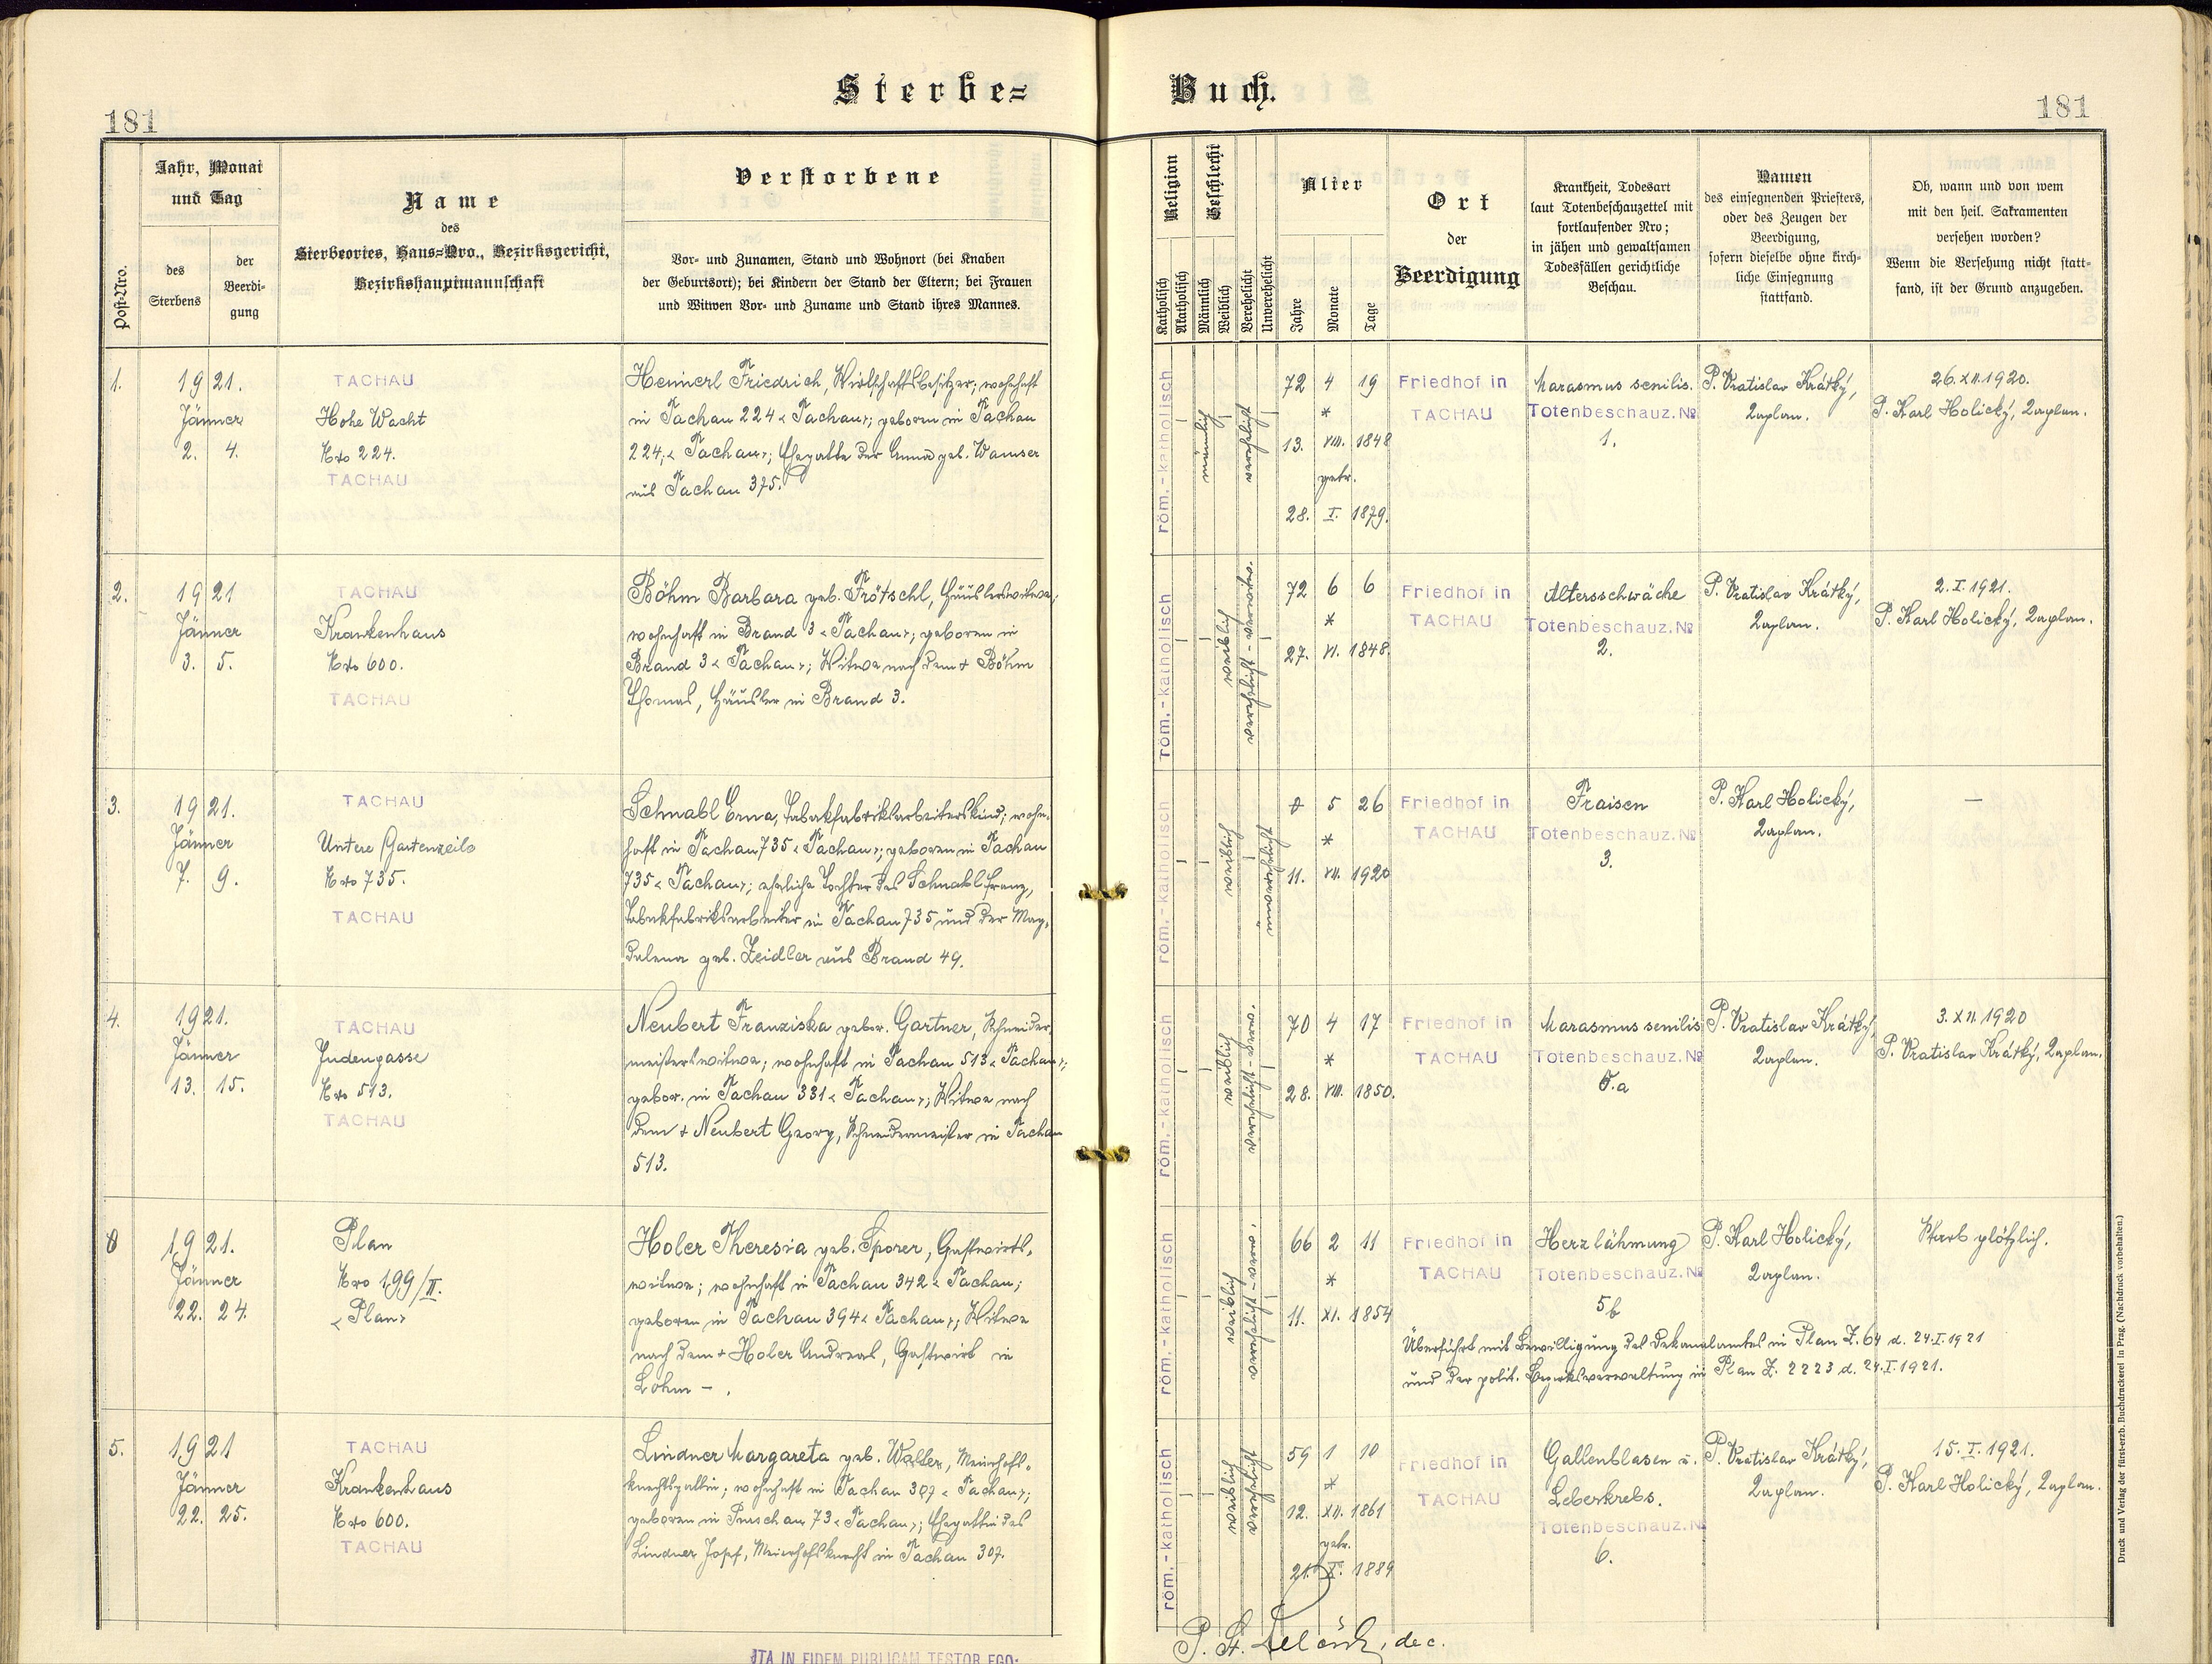 Sterbe=
Buch.
181
181
Post-Nro.
Jahr, Monat
und Tag
des
Sterbens
der
Beerdi-
gung
Name
des
Sterbeortes, Haus=Nro., Bezirksgericht,
Bezirkshauptmannschaft
Verstorbene
Vor- und Zunamen, Stand und Wohnort (bei Knaben
der Geburtsort); bei Kindern der Stand der Eltern; bei Frauen
und Witwen Vor- und Zuname und Stand ihres Mannes.
Religion
Katholisch
Akatholisch
Geschlecht
Männlich
Weiblich
Verehelicht
Unverehelicht
Alter
Jahre
Monate
Tage
Ort
der
Beerdigung
Krankheit, Todesart
laut Totenbeschauzettel mit
fortlaufender Nro;
in jähen und gewaltsamen
Todesfällen gerichtliche
Beschau.
Namen
des einsegnenden Priesters,
oder des Zeugen der
Beerdigung,
sofern dieselbe ohne kirch-
liche Einsegnung
stattfand.
Ob, wann und von wem
mit den heil. Sakramenten
versehen worden?
Wenn die Versehung nicht statt-
fand, ist der Grund anzugeben.
1.
1921.
Jänner
2. 4.
TACHAU
Hohe Wacht
Nro 224.
TACHAU
Heinerl Friedrich, Wirtschaftsbesitzer; wohnhaft
in Tachau 224 <Tachau>; geboren in Tachau
224; <Tachau>; Ehegatte der Anna geb. Wamser
aus Tachau 375.
röm.-katholisch
männlich
verehelicht
72 4 19
*
13. VIII. 1848
getr.
28. I. 1879.
Friedhof in
TACHAU
Marasmus senilis.
Totenbeschauz. No
1.
P. Vratislav Krátký,
Kaplan.
26. XII. 1920.
P. Karl Holický, Kaplan.
2.
1921
Jänner
3. 5.
TACHAU
Krankenhaus
Nro 600.
TACHAU
Böhm Barbara geb. Frötschl, Häuslerswitwe;
wohnhaft in Brand 3 <Tachau>; geboren in
Brand 3 <Tachau>; Witwe nach dem + Böhm
Thomas, Häusler in Brand 3.
röm.-katholisch
weiblich
verehelicht - verwitw.
72 6 6
*
27. VI. 1848.
Friedhof in
TACHAU
Altersschwäche
Totenbeschauz. No
2.
P. Vratislav Krátký,
Kaplan.
2. I. 1921.
P. Karl Holický, Kaplan.
3.
1921.
Jänner
7. 9.
TACHAU
Untere Gartenzeile
Nro 735.
TACHAU
Schnabl Erna, Tabakfabriksarbeiterskind; wohn-
haft in Tachau 735 <Tachau>; geboren in Tachau
735 <Tachau>; eheliche Tochter des Schnabl Franz,
Tabakfabriksarbeiter in Tachau 735 und der Mag-
dalena geb. Zeidler aus Brand 49.
röm.-katholisch
weiblich
unverehelicht
0 5 26
*
11. VII. 1920
Friedhof in
TACHAU
Fraisen
Totenbeschauz. No
3.
P. Karl Holický,
Kaplan.
—
4.
1921.
Jänner
13. 15.
TACHAU
Judengasse
Nro 513.
TACHAU
Neubert Franziska gebor. Gartner, Schneider-
meisterswitwe; wohnhaft in Tachau 513 <Tachau>;
gebor. in Tachau 331 <Tachau>; Witwe nach
dem + Neubert Georg, Schneidermeister in Tachau
513.
röm.-katholisch
weiblich
verehelicht - verw.
70 4 17
*
28. VIII. 1850.
Friedhof in
TACHAU
Marasmus senilis
Totenbeschauz. No
5.a
P. Vratislav Krátký,
Kaplan.
3. XII. 1920
P. Vratislav Krátký, Kaplan.
0
1921.
Jänner
22. 24.
Plan
Nro 199/II.
<Plan>
Holer Theresia geb. Sporer, Gastwirts-
witwe; wohnhaft in Tachau 342 <Tachau;
geboren in Tachau 394 <Tachau>; Witwe
nach dem + Holer Andreas, Gastwirt in
Lohm - .
röm.-katholisch
weiblich
verehelicht - verw.
66 2 11
*
11. XI. 1854
Friedhof in
TACHAU
Herzlähmung
Totenbeschauz. No
5b
P. Karl Holický,
Kaplan.
Starb plötzlich.
Überführt mit Bewilligung des Dekanalamtes in Plan Z. 64 d. 24.I.1921
und der polit. Bezirksverwaltung in Plan Z. 2223 d. 24.I.1921.
5.
1921
Jänner
22. 25.
TACHAU
Krankenhaus
Nro 600.
TACHAU
Lindner Margareta geb. Walter, Meierhofs-
knechtsgattin; wohnhaft in Tachau 307 <Tachau>;
geboren in Purschau 73 <Tachau>; Ehegattin des
Lindner Josef, Meierhofsknecht in Tachau 307.
röm.-katholisch
weiblich
verehelicht
59 1 10
*
12. XII. 1861
getr.
21. X. 1889
Friedhof in
TACHAU
Gallenblasen u.
Leberkrebs.
Totenbeschauz. No
6.
P. Vratislav Krátký,
Kaplan.
15. I. 1921.
P. Karl Holický, Kaplan.
dec.
ITA IN FIDEM PUBLICAM TESTOR EGO:
Druck und Verlag der fürst-erzb. Buchdruckerei in Prag. (Nachdruck vorbehalten.)